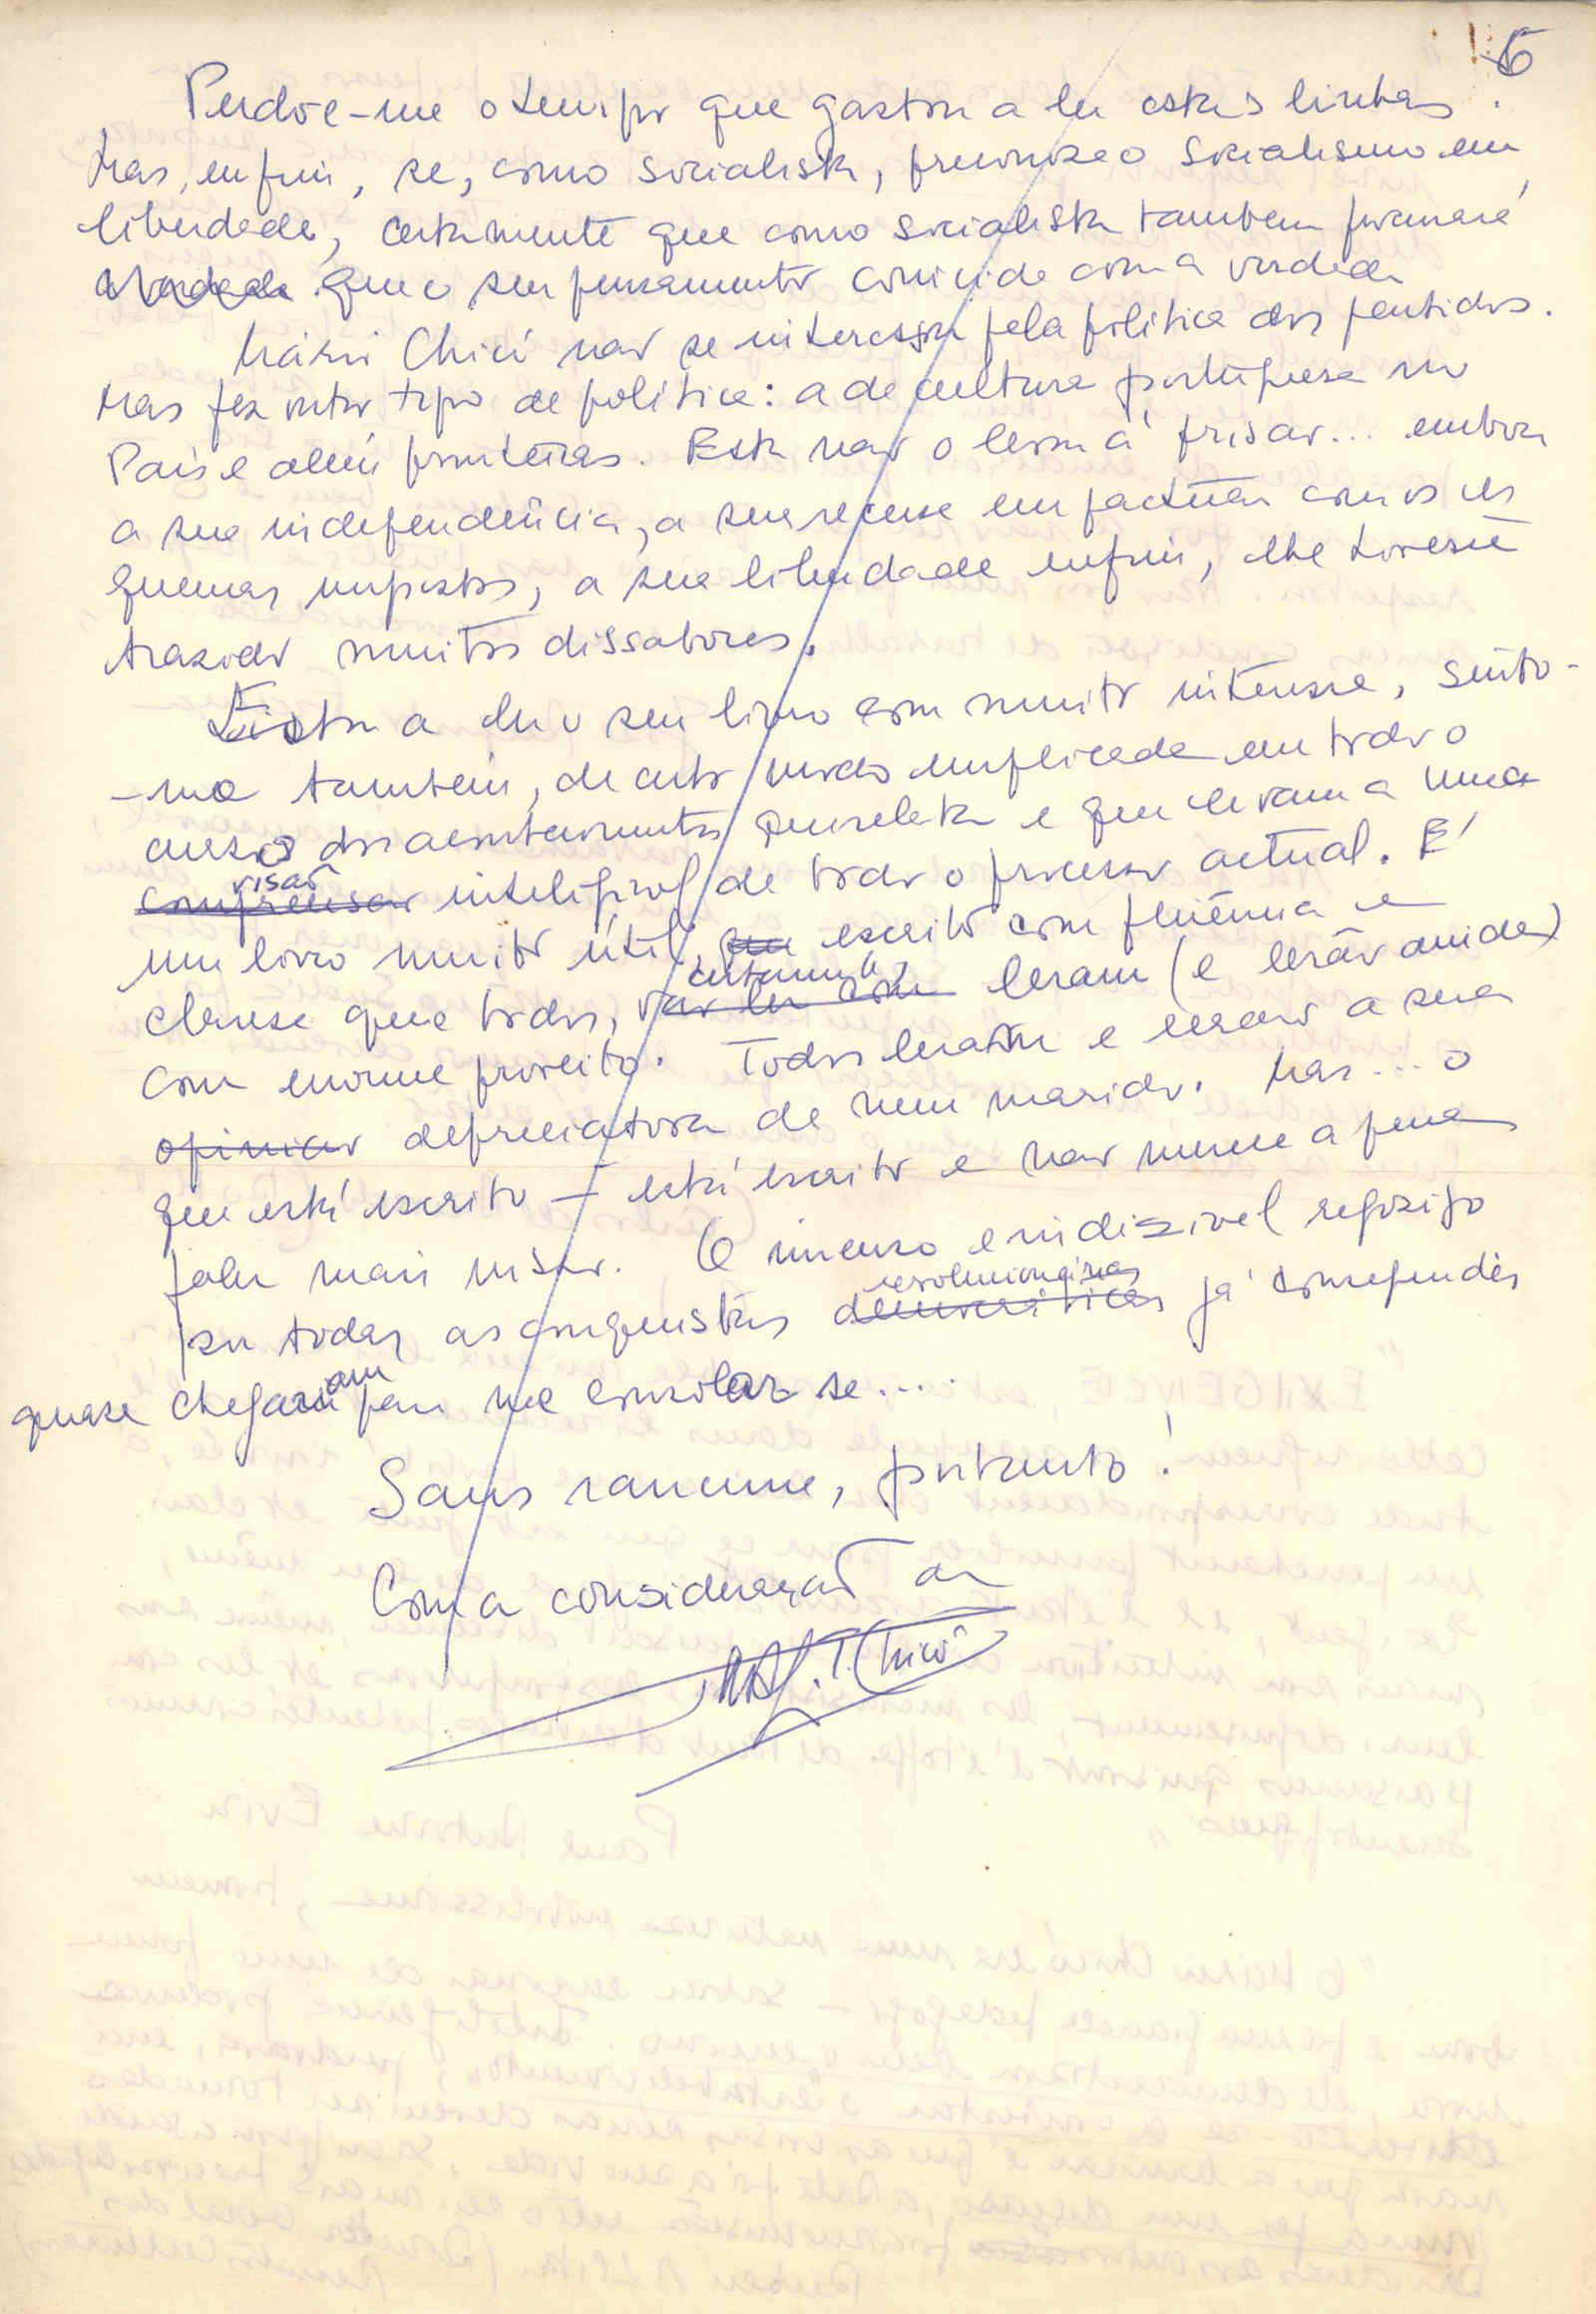 6
Perdoe-me o tempo que gastou a ler estas linhas.
Mas, enfim, se, como socialista, preconiza o socialismo em
liberdade, certamente que como socialista também
que o seu pensamento coincide com a verdade
Mário Chicó não se interessou pela política dos partidos.
Mas fez outro tipo de política: a de cultura portuguesa no
País e além fronteiras. Esta não o levou a frisar... embora
a sua independência, a sua recusa em pactuar com os es
quemas impostos, a sua liberdade enfim, lhe tivesse
trazido muitos dissabores.
Estou a ler o seu livro com muito interesse, sinto-
-me também, de certo modo implicada em todo o
curso dos acontecimentos que relata e que levam a uma
compreensão visão inteligível de todo o processo actual. É
um livro muito útil, escrito com fluência e
clareza que todos, vão ler com certamente leram (e lerão ainda)
com enorme proveito. Todos leram e lerão a sua
opinião depreciatora de meu marido. Mas... o
que está escrito – está escrito e não merece a pena
falar mais nisso. O imenso e indizível regozijo
por todas as conquistas democráticas revolucionárias já conseguidas
quase chegariam para me consolar se....
Sans rancune, portanto!
Com a consideração da
M. A. L. T. Chicó